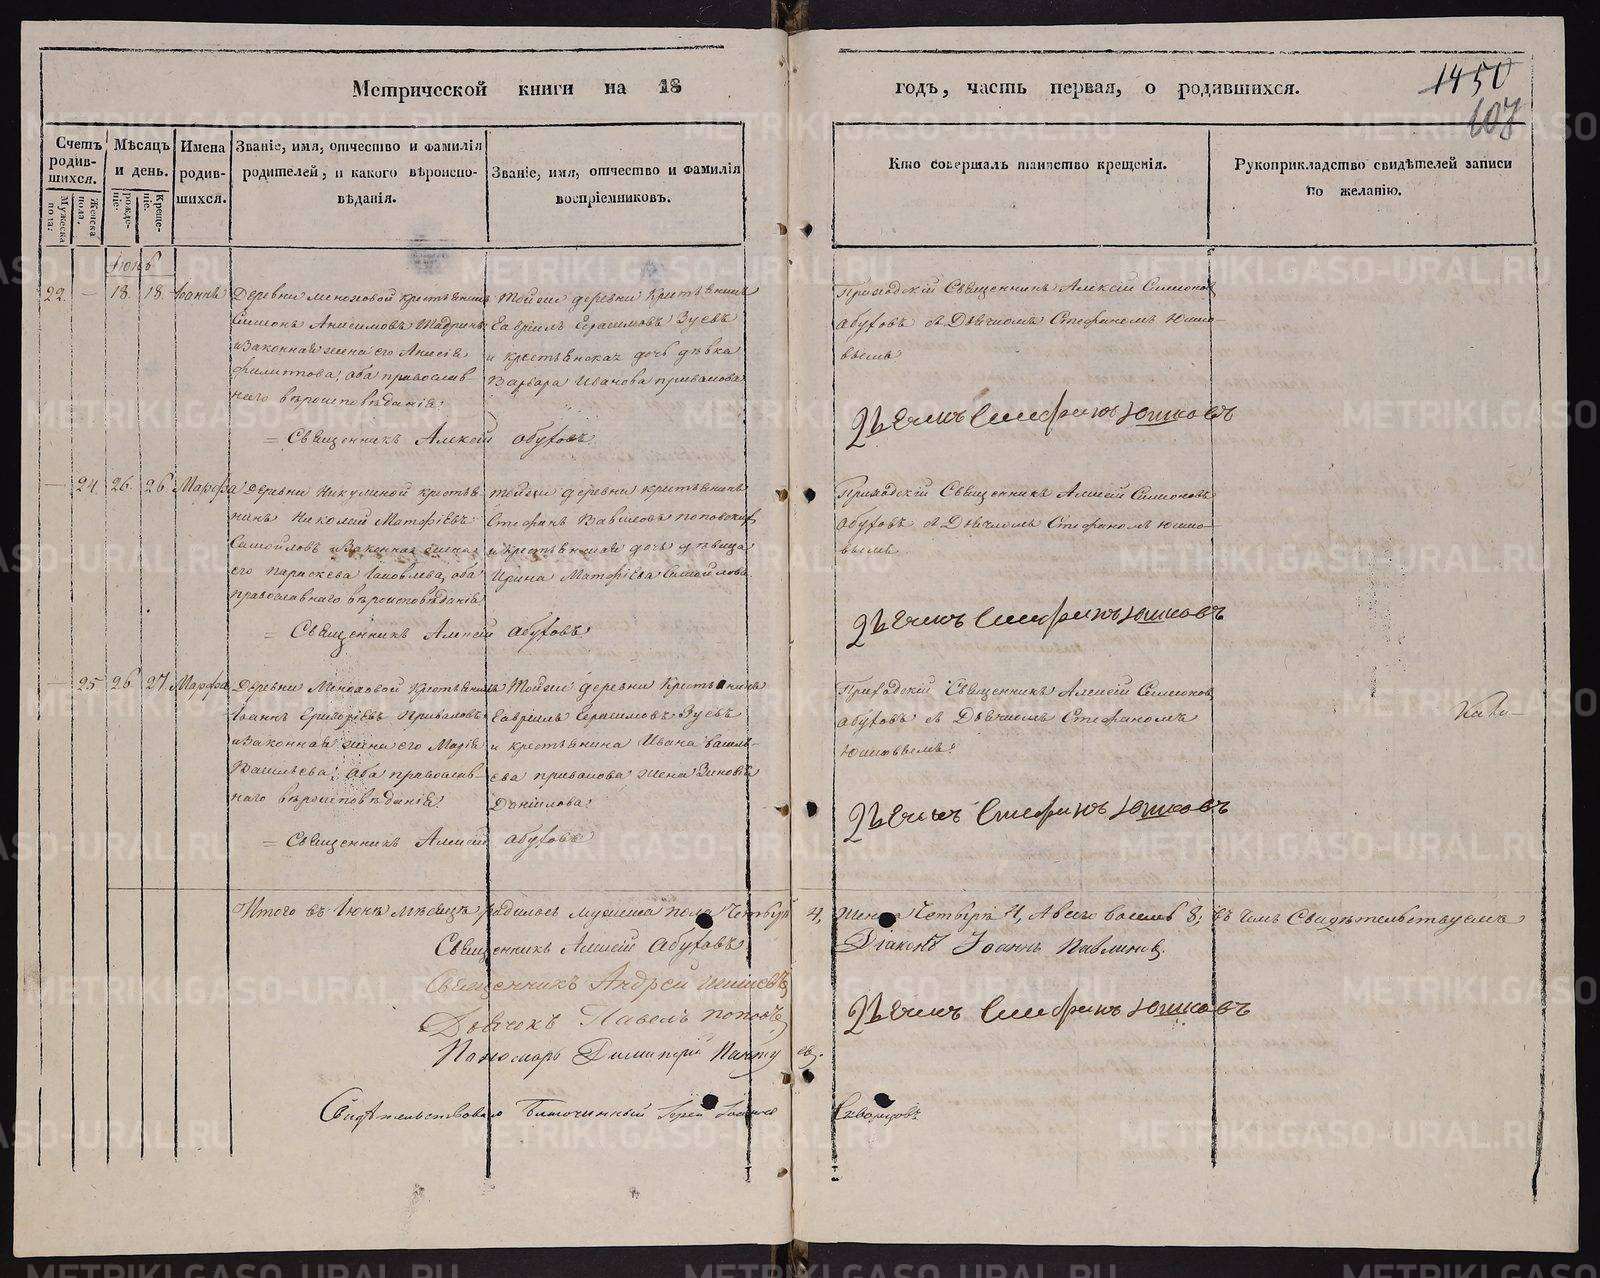 Метрической книги на 18
годъ, часть первая, о родившихся.
1450
107
Счетъ родив-шихся.
Мужеска пола.
Женска пола.
Мѣсяцъ и день.
рожде-ніе.
Креще-ніе.
Имена родив-шихся.
Званіе, имя, отчество и фамилія родителей, и какого вѣроиспо-вѣданія.
Званіе, имя, отчество и фамилія воспріемниковъ.
Кто совершалъ таинство крещенія.
Рукоприкладство свидѣтелей записи по желанію.
Іюнь
22. — 18. 18. Іоаннъ
Деревни крестьянинъ
Симеонъ Анисимовъ Шадринъ
и законная жена его Анисія
Филиппова, оба православ-
наго вѣроисповѣданія.
Тойже деревни крестьянинъ
Гавріилъ Герасимовъ Зуевъ
и крестьянская дочь дѣвка
Варвара Иванова Привалова
Приходскій Священникъ Алексій Симеоновъ
Абуховъ съ Дьячкомъ Стефаномъ Юшко-
вымъ
Дьячекъ Стефанъ Юшковъ
= Священникъ Алексій Абуховъ.
— 24. 26. 26. Марфа
Деревни Никулиной крестья-
нинъ Николай Матфіевъ
Самойловъ и законная жена
его Параскева Іаковлева, оба
православнаго вѣроисповѣданія
тойже деревни крестьянинъ
Стефанъ Вавиловъ
и крестьянская дочь дѣвица
Ирина Матфіева Самойлова.
Приходскій Священникъ Алексій Симеоновъ
Абуховъ съ Дьячкомъ Стефаномъ Юшко-
вымъ
Дьячекъ Стефанъ Юшковъ
= Священникъ Алексій Абуховъ
— 25 26. 27. Марфа
Деревни крестьянинъ
Іоаннъ Григоріевъ Приваловъ
и законная жена его Марія
Васильева; оба православ-
наго вѣроисповѣданія.
Тойже деревни Крестьянинъ
Гавріилъ Герасимовъ Зуевъ
и крестьянина Ивана Василь-
ева Привалова жена Зиновія
Данилова.
Приходскій Священникъ Алексій Симеоновъ
Абуховъ съ Дьячкомъ Стефаномъ
Юшковымъ
Дьячекъ Стефанъ Юшковъ
= Священникъ Алексій Абуховъ
Итого въ Іюнѣ мѣсяцѣ родилось мужеска пола Четыре 4, Женска Четыре 4, А всего восемь 8; въ чемъ Свидѣтельствуемъ
Священникъ Алексій Абуховъ.
Діаконъ Іоаннъ Павлиновъ.
Священникъ Андрей
Дьячекъ Павелъ Поповъ
Дьячекъ Стефанъ Юшковъ
Пономарь Димитрій
Свидѣтельствовалъ Благочинный Іерей
METRIKI.GASO-URAL.RU